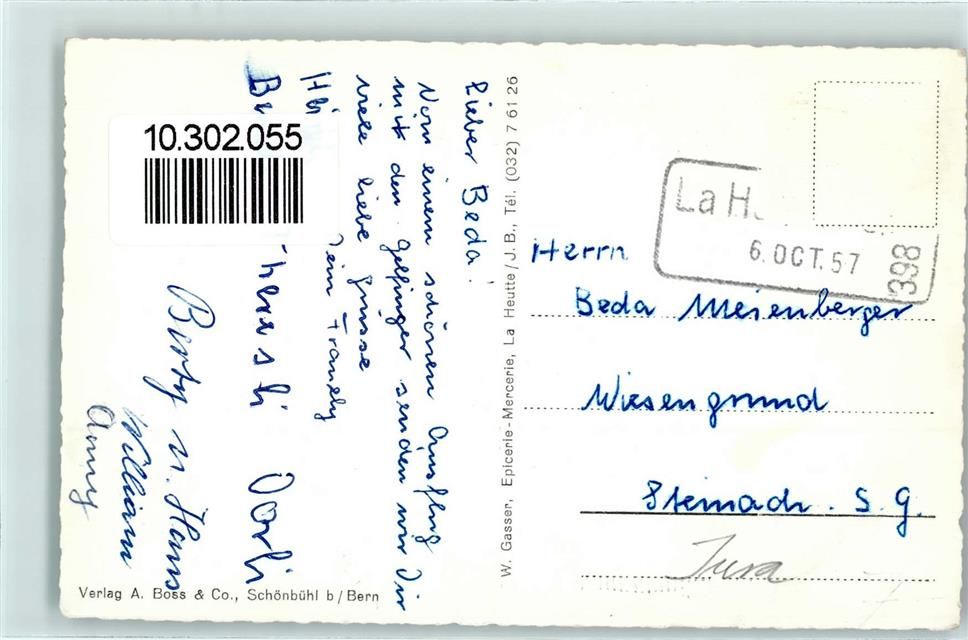 Lieber Beda!
Vom einem schönen Ausflug
mit den Gilfinger senden wir Dir
viele liebe Grüsse
Dein Franely
Hei
Berty u. Hans
William
Anny
Dorli
10.302.055
Verlag A. Boss & Co., Schönbühl b/Bern
W. Gasser, Epicerie-Mercerie, La Heutte/J.B., Tél. (032) 7 61 26
La H.
6. OCT. 57
398
Herrn
Beda Meienberger
Wiesengrund
Steinach. S. G.
Jura